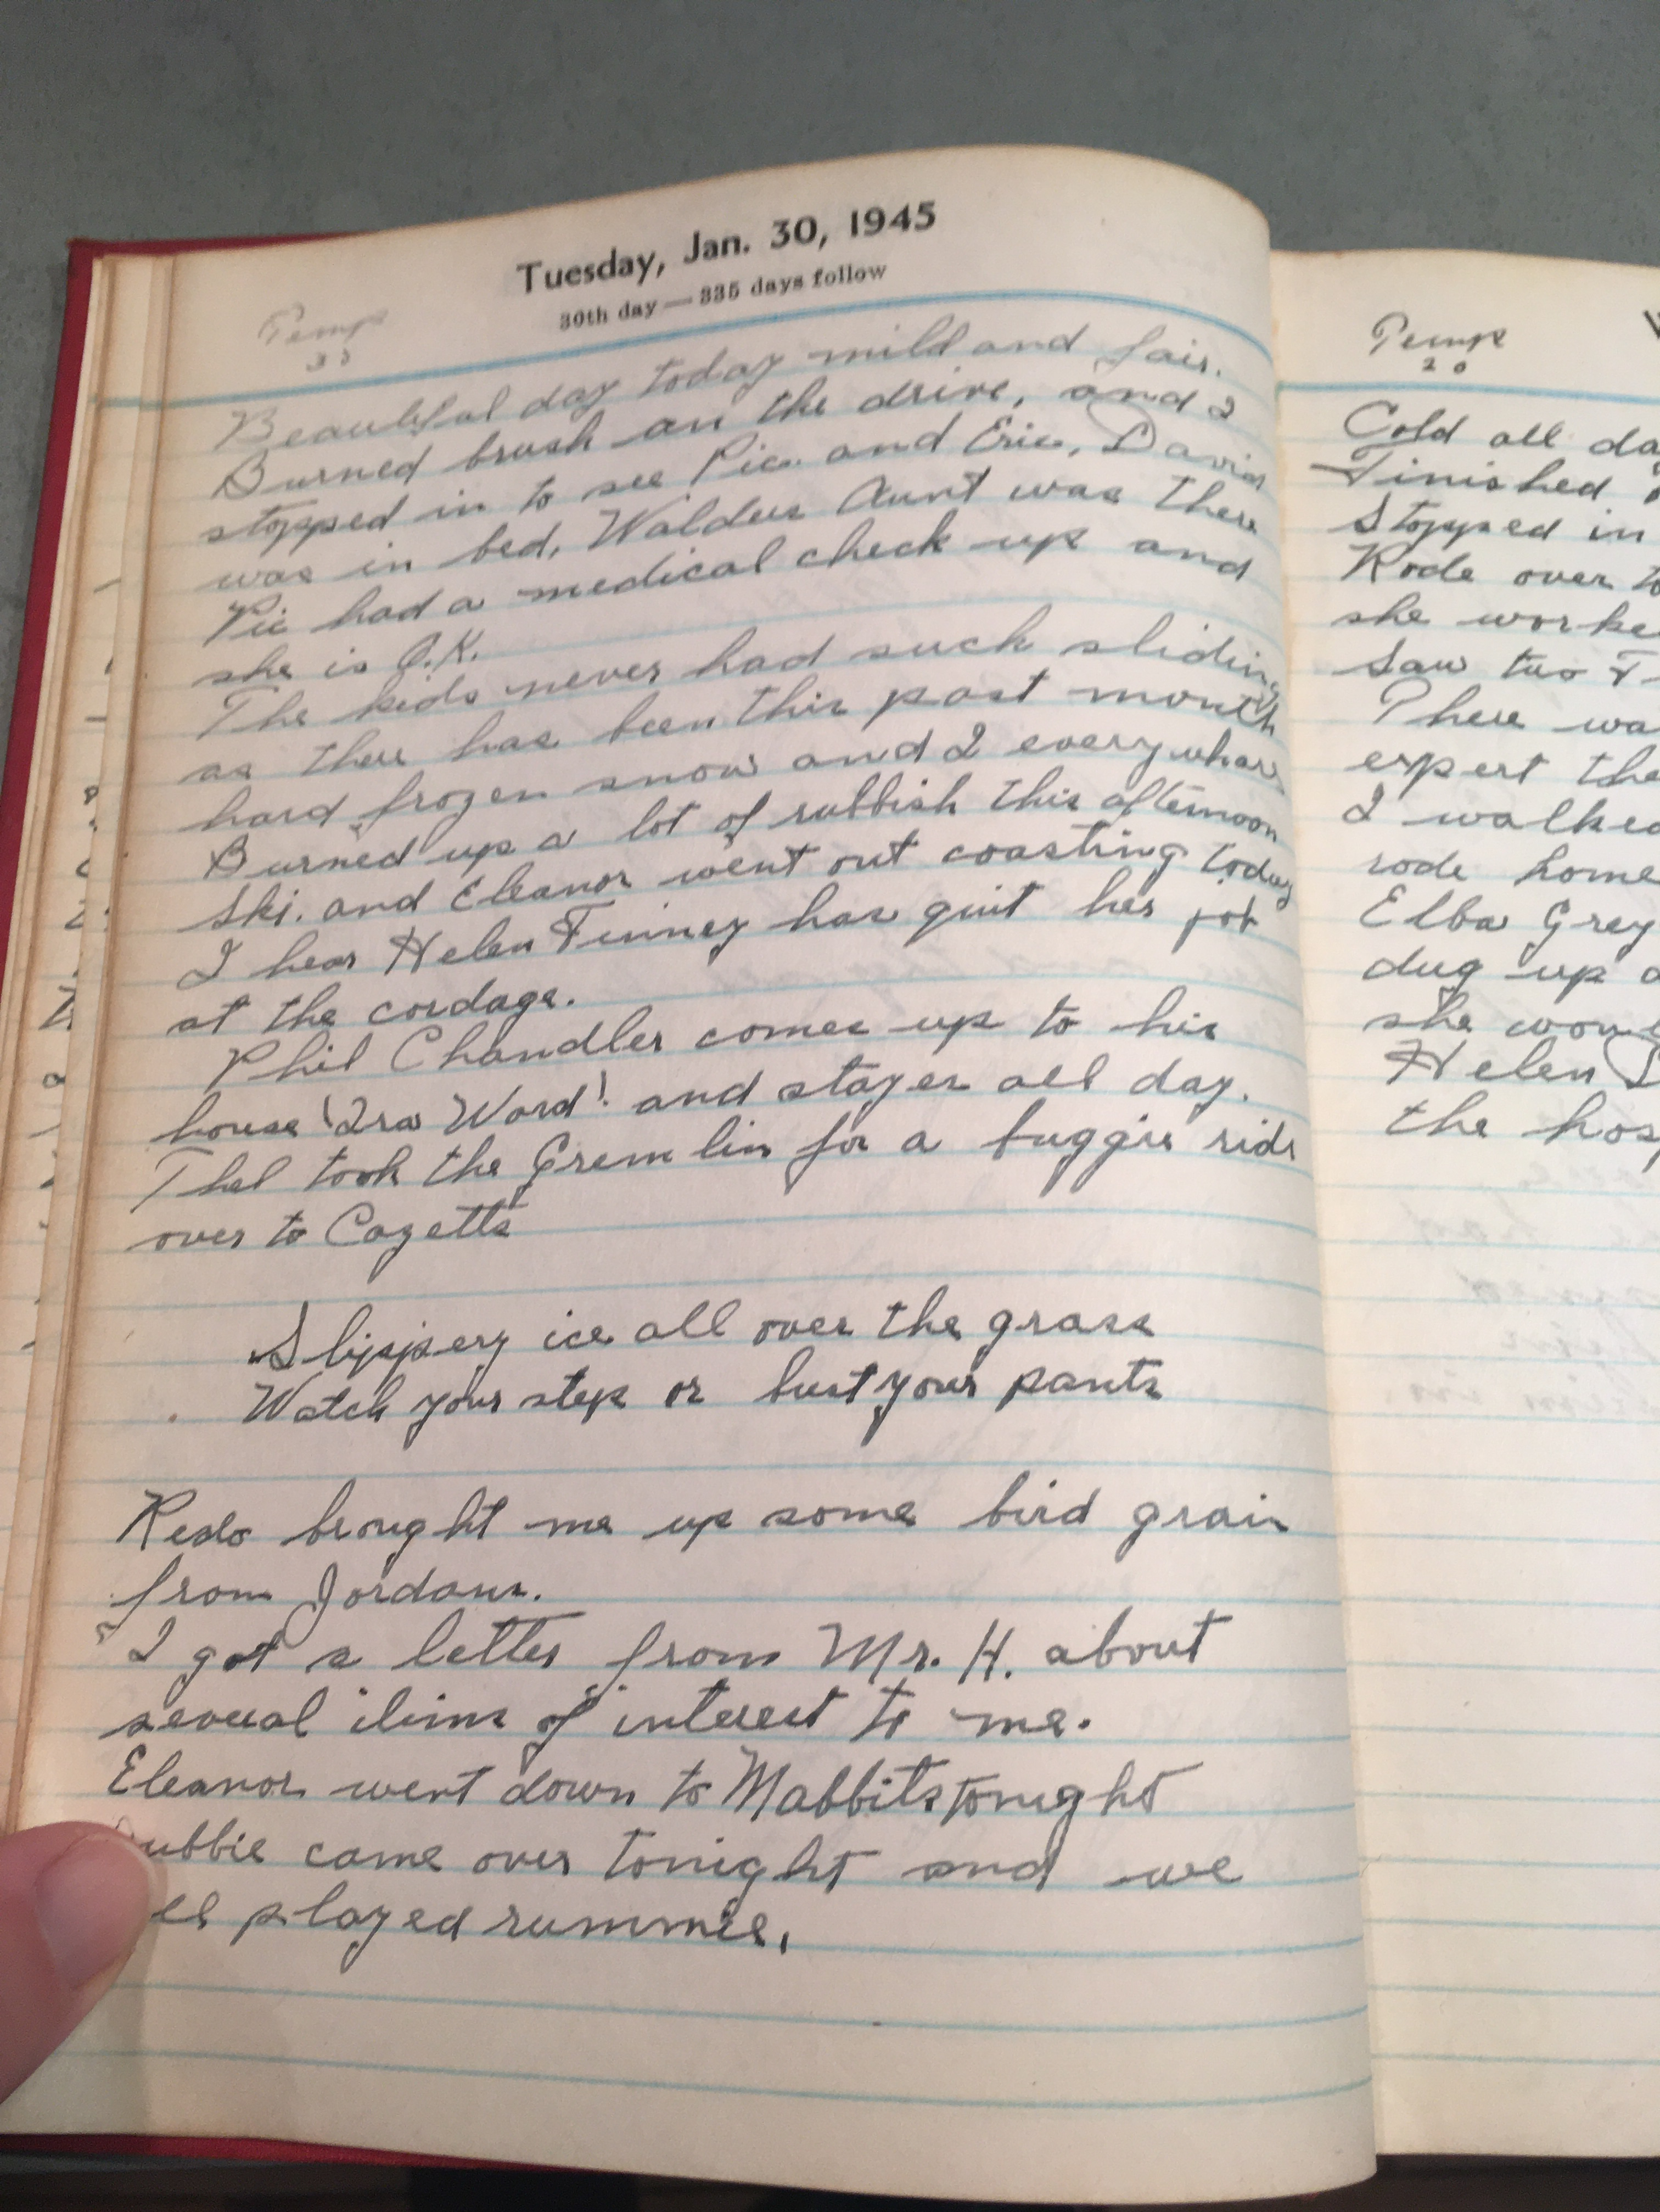 Tuesday, Jan. 30, 1945
30th day — 335 days follow
Temp
33
Beautiful day today mild and fair.
Burned brush an the drive, and I
stopped in to see Pic. and Eric, David
was in bed, Waldus Aunt was there
Pic had a medical check up and
she is O.K.
The kids never had such sliding
as there has been this past month
hard frozen snow and I everywhare
Burned up a lot of rubbish this afternoon
Ski. and Eleanor went out coasting today
I hear Helen Finney has quit her job
at the cordage.
Phil Chandler comes up to his
house 'Ira Word' and stayes all day.
Thel took the Gremlin for a buggie ride
over to Cazetts
Slippery ice all over the grass
Watch your step or bust your pants
brought me up some bird grain
from Jordans.
I got a letter from Mr. H. about
several itims of interest to me.
Eleanor went down to Mabbits tonight
came over tonight and we
played rummie.
Temp
20
Cold all
Finished
Stopped in
Rode over to
she
Saw two
There
expert the
I
rode home
Elba Grey
dug up
she
Helen
the